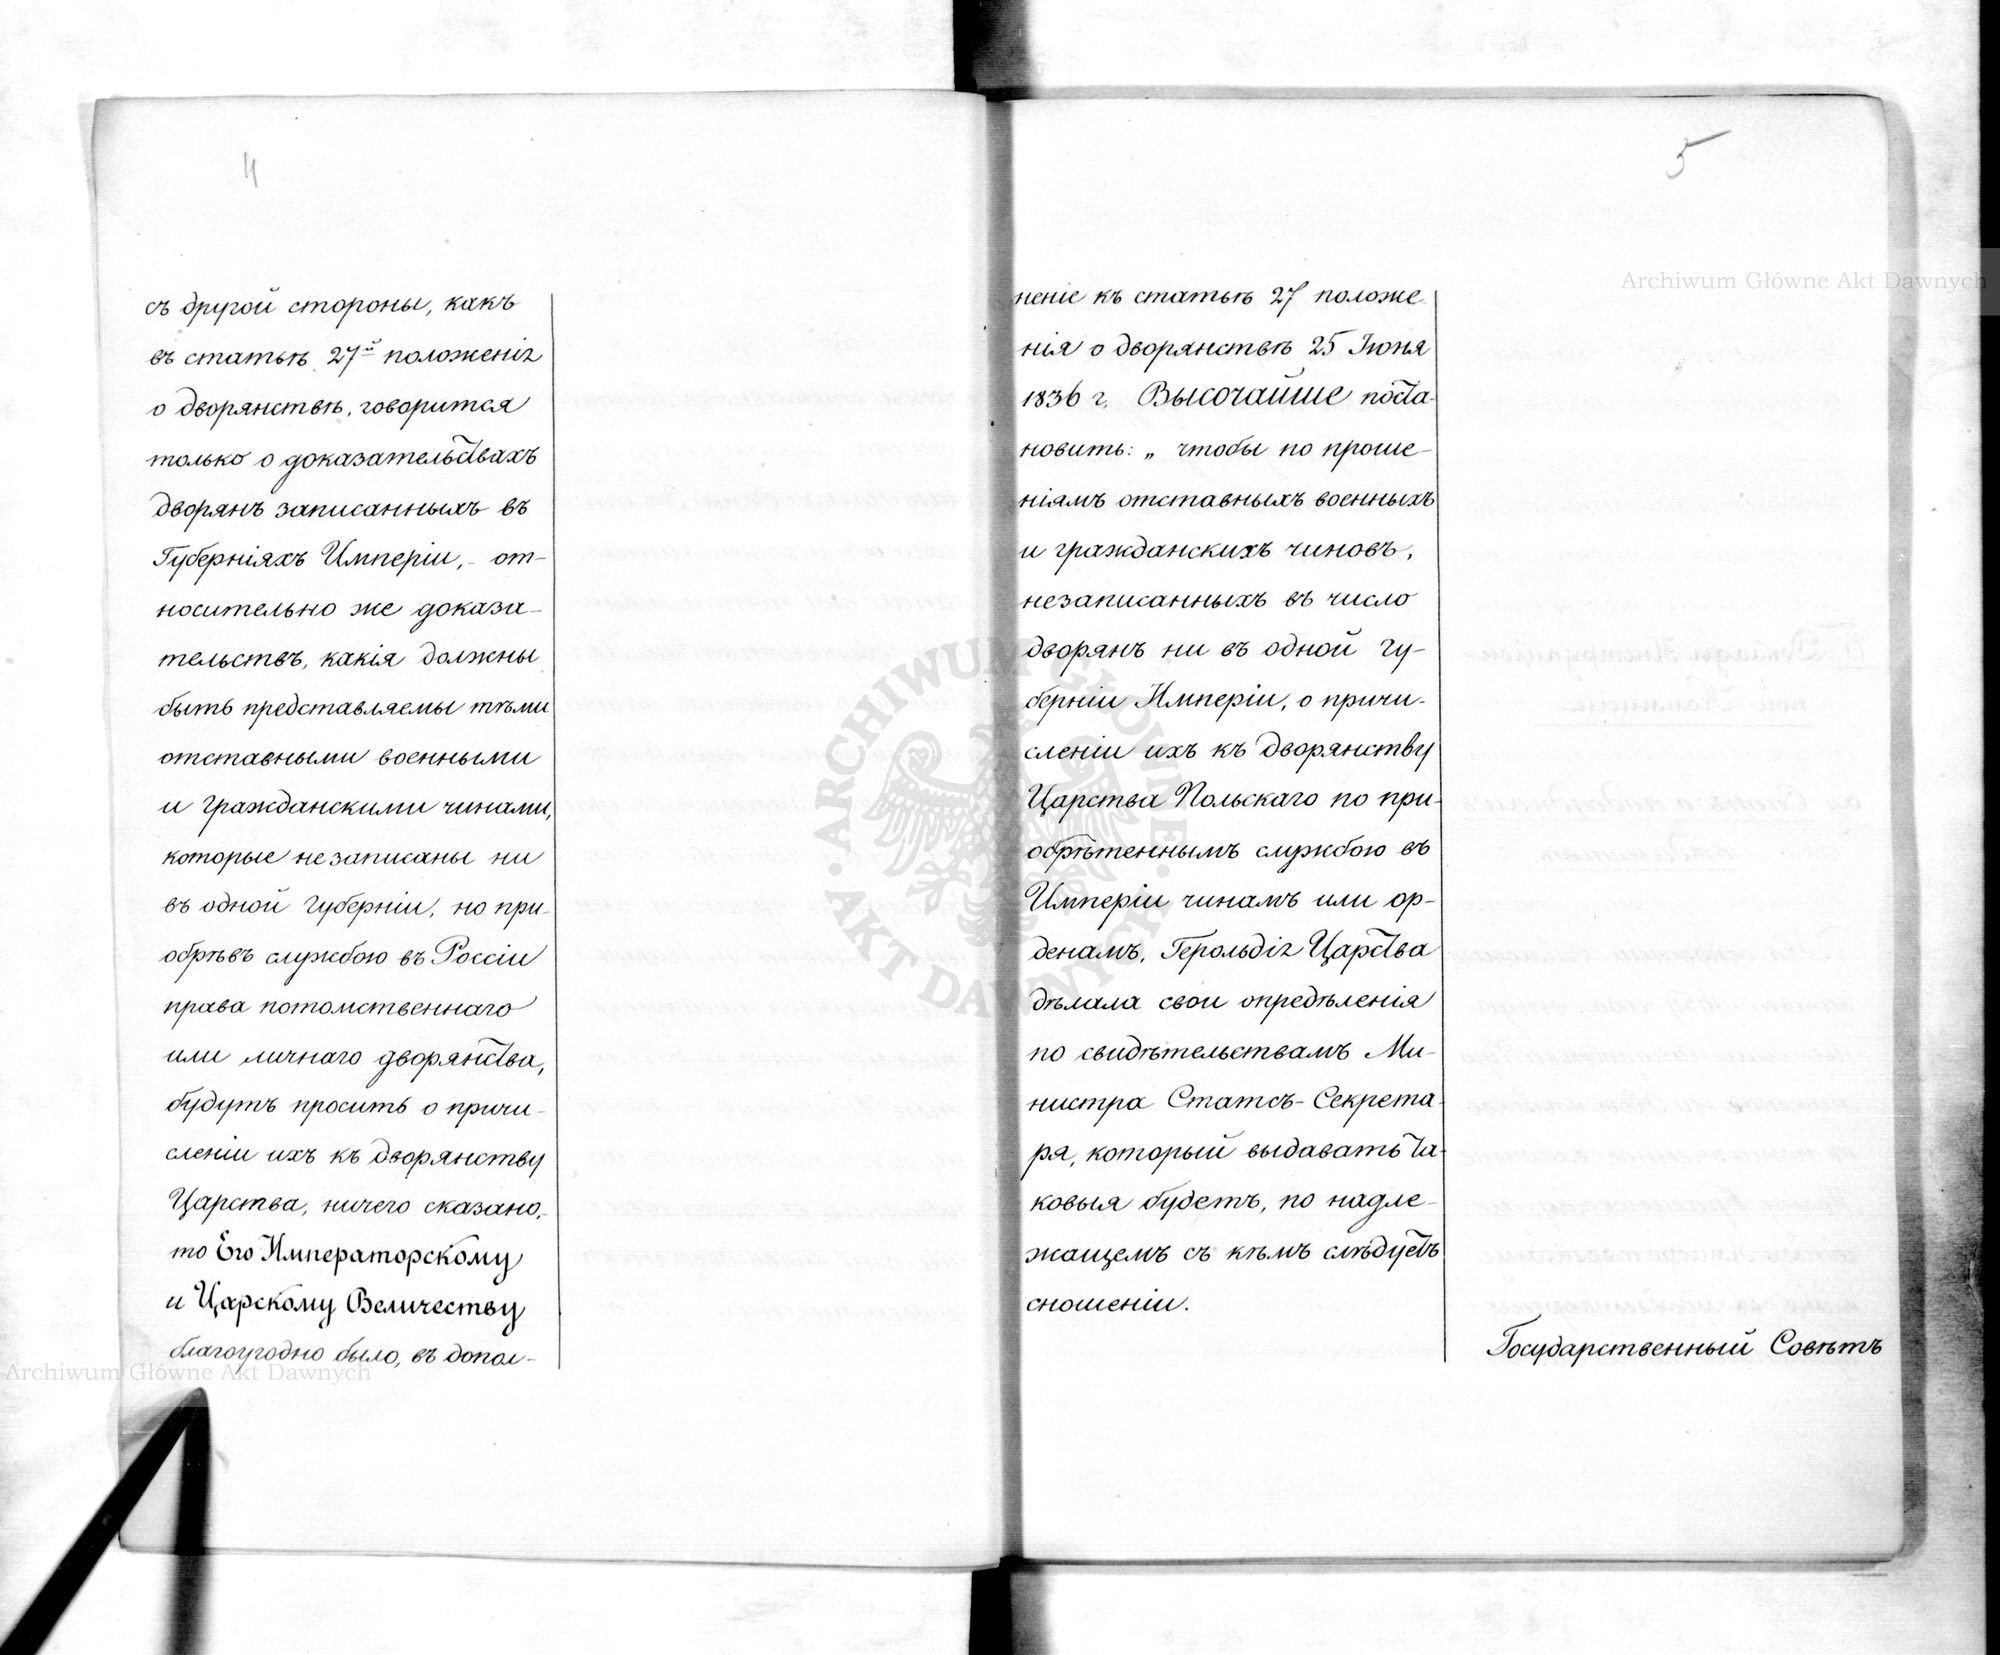 4
съ другой стороны, какъ
въ статьѣ 27й положенія
о дворянствѣ, говорится
только о доказательствахъ
дворянъ записанныхъ въ
Губерніяхъ Имперіи, - от-
носительно же доказа-
тельствъ, какія должны
быть представляемы тѣми
отставными военными
и гражданскими чинами,
которые незаписаны ни
въ одной губерніи, но при-
обрѣвъ службою въ Россіи
права потомственнаго
или личнаго дворянства,
будутъ просить о причи-
сленіи ихъ къ дворянству
Царства, ничего сказано,-
то Его Императорскому
и Царскому Величеству
благоугодно было, въ допол-
5
неніе къ статьѣ 27 положе
нія о дворянствѣ 25 Іюня
1836 г. Высочайше поста-
новить: „ чтобы по проше-
ніямъ отставныхъ военныхъ
и гражданскихъ чиновъ,
незаписанныхъ въ число
дворянъ ни въ одной гу-
берніи Имперіи, о причи-
сленіи ихъ къ дворянству
Царства Польскаго по при-
обрѣтеннымъ службою въ
Имперіи чинамъ или ор-
денамъ, Герольдія Царства
дѣлала свои опредѣленія
по свидѣтельствамъ Ми-
нистра Статсъ-Секрета-
ря, который выдавать та-
ковыя будетъ, по надле-
жащемъ съ кѣмъ слѣдуетъ
сношеніи.
Государственный Совѣтъ
Archiwum Główne Akt Dawnych
Archiwum Główne Akt Dawnych
ARCHIWUM GŁÓWNE · AKT DAWNYCH ·